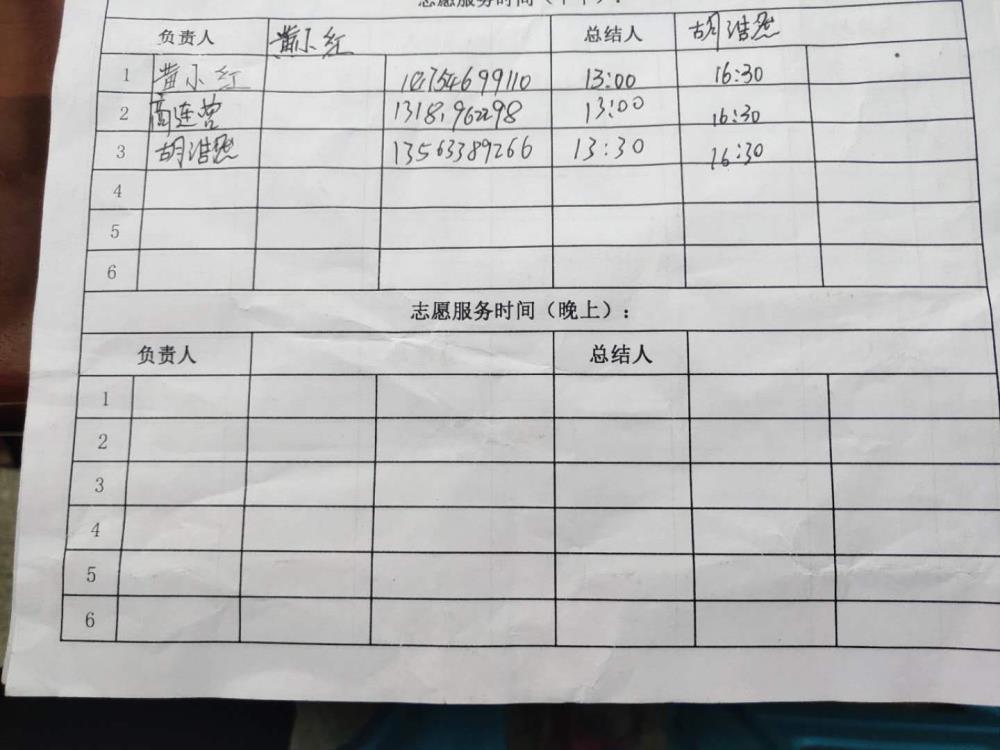 志愿服务时间（下午）：
负责人 黄小红 总结人 胡浩然
1 黄小红 13:00 16:30
2 高连营 13:00 16:30
3 胡浩然 13563389266 13:30 16:30
4
5
6
志愿服务时间（晚上）：
负责人 总结人
1
2
3
4
5
6